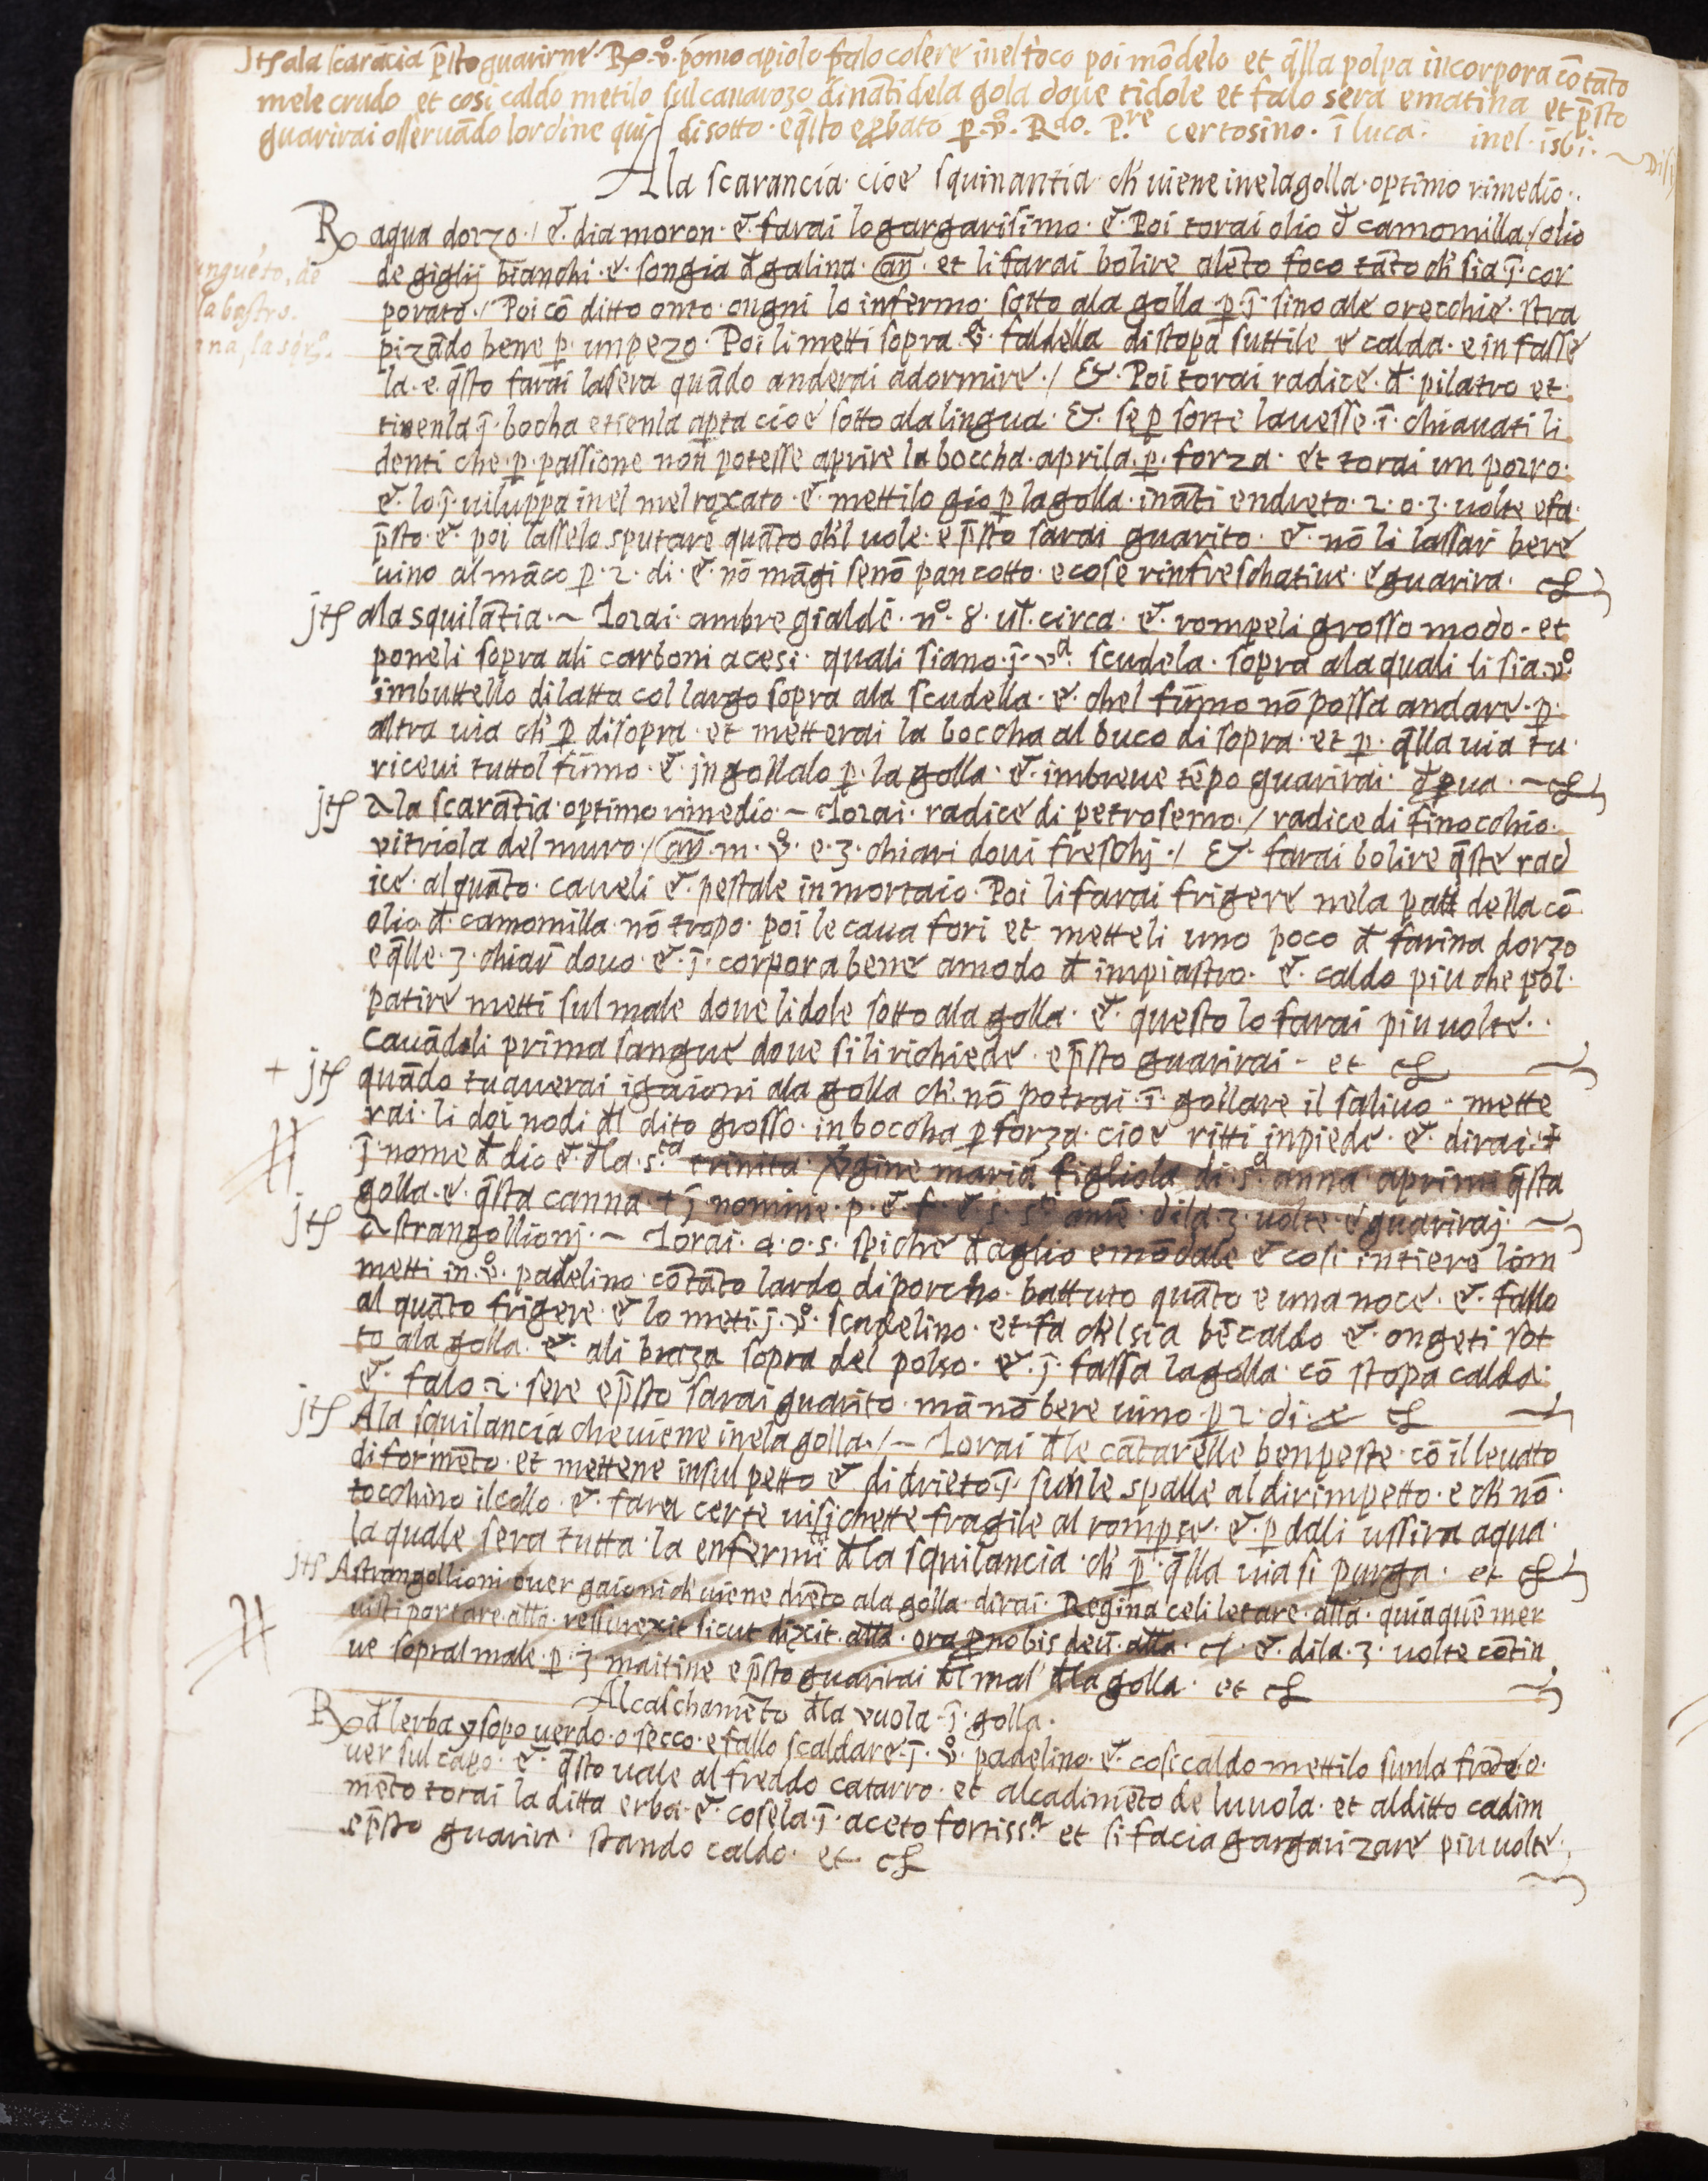 jtʃ ala scarācia p̄sto guarirne. Rx. v̊. pomo apiolo falo cosere inel foco poi mōdelo et q̄lla polpa incorpora cō tāto
mele crudo et cosi caldo metilo sul cauarozo dināti dela gola doue ti dole et falo sera e matina et p̄sto
guarirai osseruādo lordine qui disotto. e q̄sto e ꝓbato ꝑ. v̊. Rdo. P.re certosino. ī luca. inel. 1561.
Ala scarancia. cioe squinantia. ch' uiene inelagolla. optimo rimedio..
Rx aqua dorzo. / et. dia moron. et. farai lo gargarisimo. et. Poi torai olio đ camomilla / olio
de giglij bianchi. e. songia đ galina. añ. et li farai bolire alēto foco tāto ch' sia ī. cor
porato. / Poi cō ditto onto. ongni lo infermo. sotto ala golla ꝑ ī. sino ale orecchie. stra
pizādo bene ꝑ. un pezo. Poi li metti sopra. v̊. faldella di stopa suttile e calda. e in fasse
la. e. q̄sto farai la sera quādo anderai adormire. / Et. Poi torai radice. đ. pilatro et.
tinenla ī. bocha e tienla aꝑta cioe sotto ala lingua. Et. se ꝑ sorte lauesse. ī. chiauati li
denti che. ꝑ. passione non potesse aprire la boccha. aprila. ꝑ. forza. et torai un porro.
et. lo. ī. uiluppa in el mel roxato. et. mettilo gio ꝑ la golla. ināti endreto. 2. o. 3. uolte e fa.
p̄sto. et. poi lasselo sputare quāto ch'l uole. e p̄sto sarai guarito. et. nō li lassar bere
uino al māco ꝑ. 2. di. et. nō māgi se nō pan cotto. e cose rinfreschatiue. e guarira. cf
jtʃ ala squilātia. ~ Torai. ambre gialde. n°. 8. ul. circa. et. rompeli grosso modo. et
poneli sopra ali carboni acesi. quali siano. ī. va. scudela. sopra ala quali li sia. v̊
imbuttello di latta col largo sopra ala scudella. e. chel fūmo nō possa andare. ꝑ.
altra uia ch' ꝑ di sopra. et metterai la boccha al buco di sopra. et ꝑ. q̄lla uia tu.
riceui tuttol fūmo. et. jngollalo ꝑ. la golla. et. imbreue tēpo guarirai. đ ꝑ ua. ~ cf
jtʃ Ala scarātia. optimo rimedio. ~ Torai. radice di petrosemo. / radice di finocchio.
vitriola del muro. / añ. m. v̊. e. 3. chiari doui freschj. / Et. farai bolire q̄ste rad
ice. al quāto. caueli et. pestale in mortaio. Poi li farai frigere nela patt della cō
olio đ. camomilla. nō tropo. poi le caua fori et metteli uno poco đ farina dorzo
e q̄lle. 3. chiar̄ douo. et. ī. corpora bene amodo đ impiastro. et. caldo piu che pol.
patire metti sul male doue li dole sotto ala golla. et. questo lo farai piu uolte..
Cauādoli prima sangue doue si li richiede. e p̄sto guarirai. et cf
+ jtʃ quādo tu auerai i gaioni ala golla ch' nō potrai. ī. gollare il saliuo. mette
rai. li doi nodi đl dito grosso. in boccha ꝑ forza. cioe ritti jn piede. et. dirai. +
ī. nome đ dio et. đla. s.ta trinita. v̄gine maria figliola di. s.a anna. aprimi q̄sta
golla. e. q̄sta canna. + ī nomine. p. et. f. et. s. sti amē. dila. 3. uolte. e guariraj. ~
jtʃ Astrangollionj. ~ Torai. 4. o. 5. spiche đ aglio e mōdale e cosi intiere lom
metti in. v̊. padelino. cō tāto lardo di porcho. battuto quāto e una noce. et. fallo
al quāto frigere. et lo meti. ī. v̊. scudelino. et fa ch'l sia bē caldo et. ongeti sot
to ala golla. et. ali braza sopra del polso. et. ī. fassa la golla. cō stopa calda.
et. falo. 2. sere e p̄sto sarai guarito. mā nō bere uino. ꝑ 2. di. e cf
jtʃ Ala squilancia che uiene inela golla. / ~ Torai đle cātarelle ben peste. cō il leuato
di formēto. et mettene insul petto et. di drieto. ī. sun le spalle al dirimpetto. e ch' nō.
tocchino il collo. et. fara certe uisichette fragile al rompe. et. ꝑ dali ussira aqua.
la quale sera tutta. la enfermita đla squilancia. ch' ꝑ. q̄lla uia si purga. et cf
jtʃ Astrangollioni ouer gaioni ch' uiene drēto ala golla. dirai. Regina celi letare. alla. quia quē mer
uisti portare. alla. ressurexit sicut dixit. alla. ora ꝑ nobis deū. alla. cf. et. dila. 3. uolte cōtin
ue sopral male. ꝑ. 3. maitine e p̄sto guarirai đl mal' đla golla. et cf
Al caschamēto đla vuola. ī. golla.
Rx đ lerba ysopo uerdo. o secco. e fallo scaldare. ī. v̊. padelino. et. cosi caldo mettilo sunla frōte. o.
uer sul capo. et. q̄sto uale al freddo catarro. et al cadimēto de luuola. et al ditto cadim
mēto torai la ditta erba. et. cosela. ī. aceto fortiss.o et si facia gargarizare piu uolte.
e p̄sto guarira. stando caldo. et cf